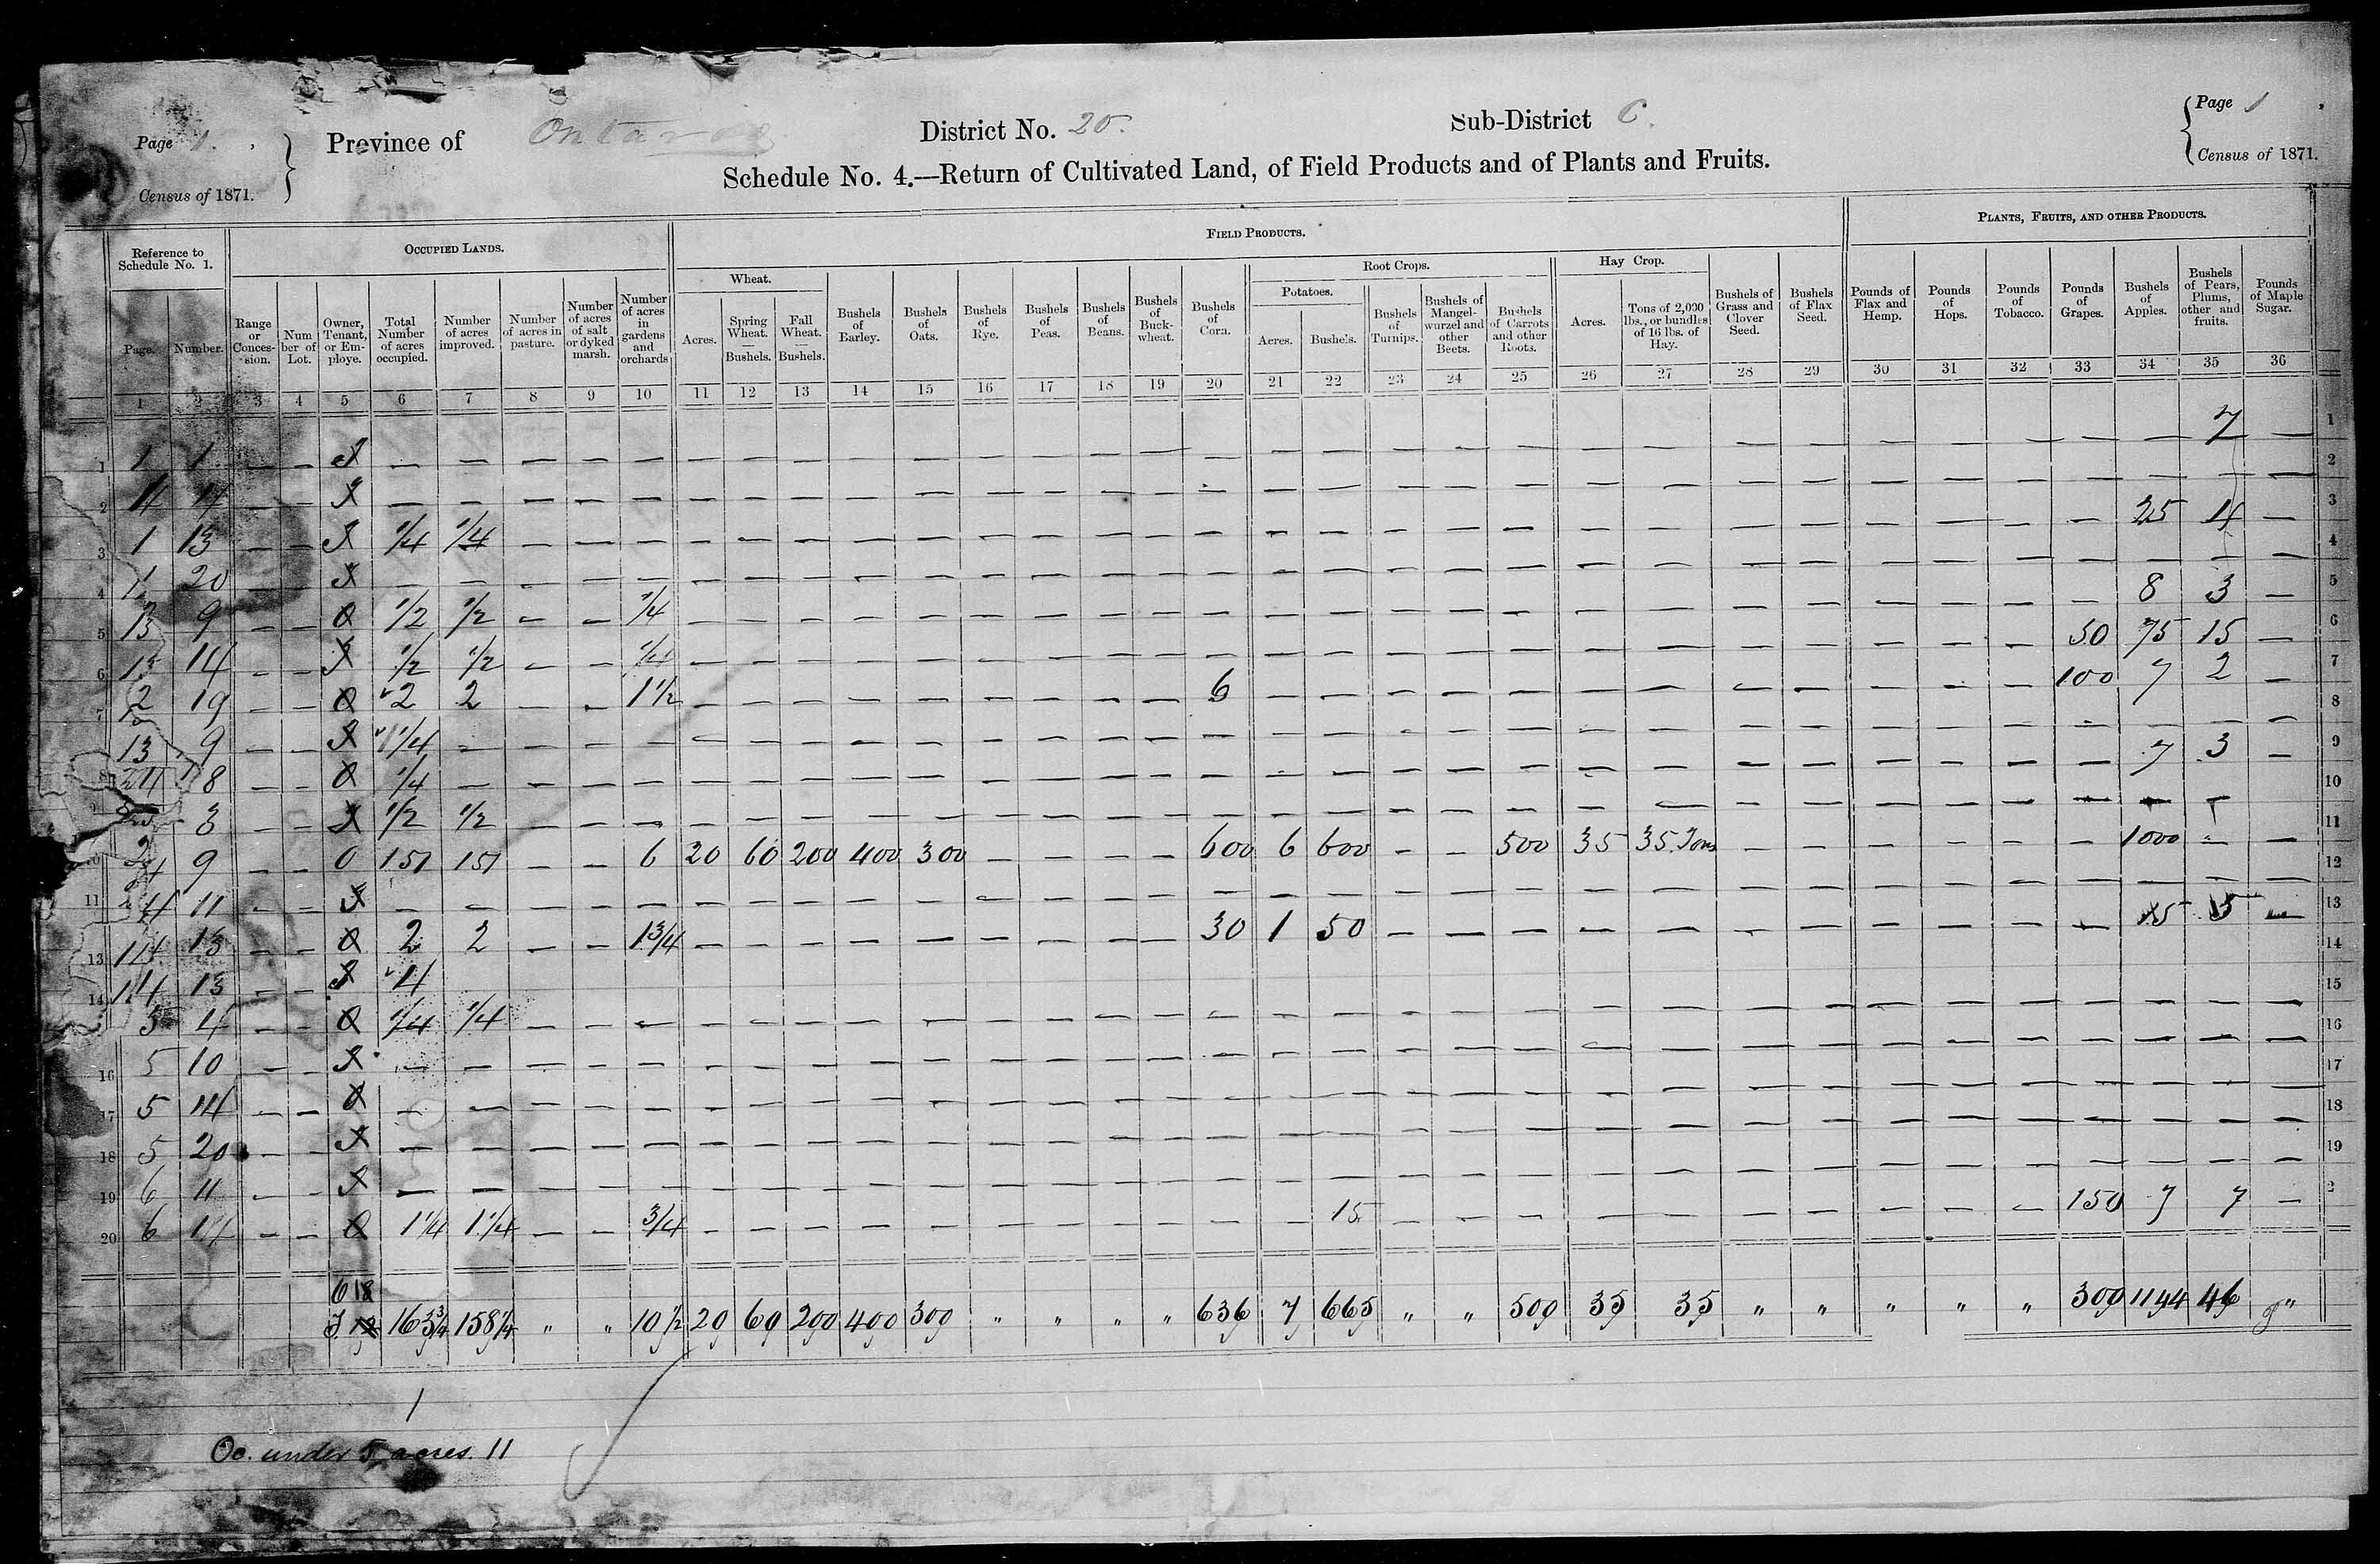 Page 1.
Province of Ontario
District No. 20.
Sub-District C.
Page 1
Census of 1871.
Census of 1871.
Schedule No. 4.—Return of Cultivated Land, of Field Products and of Plants and Fruits.
Reference to Schedule No. 1.
Occupied Lands.
Field Products.
Plants, Fruits, and other Products.
Wheat.
Root Crops.
Hay Crop.
Potatoes.
Page.
Number.
Range or Conces- sion.
Num ber of Lot.
Owner, Tenant, or Em- ploye.
Total Number of acres occupied.
Number of acres improved.
Number of acres in pasture.
Number of acres of salt or dyked marsh.
Number of acres in gardens and orchards
Acres.
Spring Wheat. — Bushels.
Fall Wheat. — Bushels.
Bushels of Barley.
Bushels of Oats.
Bushels of Rye.
Bushels of Peas.
Bushels of Beans.
Bushels of Buck- wheat.
Bushels of Corn.
Acres.
Bushels.
Bushels of Turnips.
Bushels of Mangel- wurzel and other Beets.
Bushels of Carrots and other Roots.
Acres.
Tons of 2,000 lbs., or bundles of 16 lbs. of Hay.
Bushels of Grass and Clover Seed.
Bushels of Flax Seed.
Pounds of Flax and Hemp.
Pounds of Hops.
Pounds of Tobacco.
Pounds of Grapes.
Bushels of Apples.
Bushels of Pears, Plums, other and fruits.
Pounds of Maple Sugar.
1 2 3 4 5 6 7 8 9 10 11 12 13 14 15 16 17 18 19 20 21 22 23 24 25 26 27 28 29 30 31 32 33 34 35 36
1 1 1 — — — — — — — — — — — — — — — — — — — — — — — — — — — — — — — — 7 — 1
2 — — — — — — — — — — — — — — — — — — — — — — — — — — — — — — — — — — 2
3 1 13 — — 1/4 1/4 — — — — — — — — — — — — — — — — — — — — — — — — — — 25 4 — 3
4 1 20 — — — — — — — — — — — — — — — — — — — — — — — — — — — — — — — — — 4
5 13 9 — — O 1/2 1/2 — — 1/4 — — — — — — — — — — — — — — — — — — — — — — — 8 3 — 5
6 13 14 — — 1/2 1/2 — — 1/4 — — — — — — — — — — — — — — — — — — — — — — 50 75 15 — 6
7 2 19 — — O 2 2 — — 1 1/2 — — — — — — — — — 6 — — — — — — — — — — — — 100 7 2 — 7
13 9 — — 1/4 — — — — — — — — — — — — — — — — — — — — — — — — — — — — — — 8
8 24 8 — — O 1/4 — — — — — — — — — — — — — — — — — — — — — — — — — — — 7 3 — 9
3 — — 1/2 1/2 — — — — — — — — — — — — — — — — — — — — — — — — — — — — 10
9 — — O 151 151 — — 6 20 60 200 400 300 — — — — 600 6 600 — — 500 35 35 Tons — — — — — — 1000 — — 11
11 4 11 — — — — — — — — — — — — — — — — — — — — — — — — — — — — — — — — — 12
13 14 13 — — O 2 2 — — 1 3/4 — — — — — — — — — 30 1 50 — — — — — — — — — — — 15 — 13
14 14 13 — — 4 14
5 4 — — O 1/4 1/4 — — — — — — — — — — — — — — — — — — — — — — — — — — — — — 15
16 5 10 — — — — — — — — — — — — — — — — — — — — — — — — — — — — — — — — — 16
17 5 14 — — O — — — — — — — — — — — — — — — — — — — — — — — — — — — — — — — 17
18 5 20 — — — — — — — — — — — — — — — — — — — — — — — — — — — — — — — — — 18
19 6 11 — — — — — — — — — — — — — — — — — — — — — — — — — — — — — — — — — 19
20 6 14 — — O 1 1/4 1 1/4 — — 3/4 — — — — — — — — — — — 15 — — — — — — — — — — 150 7 7 — 2
163 3/4 158 1/4 " " 10 1/2 20 60 200 400 300 " " " " 636 7 665 " " 500 35 35 " " " " " 300 1194 46 "
1
Oc. under 5 acres. 11